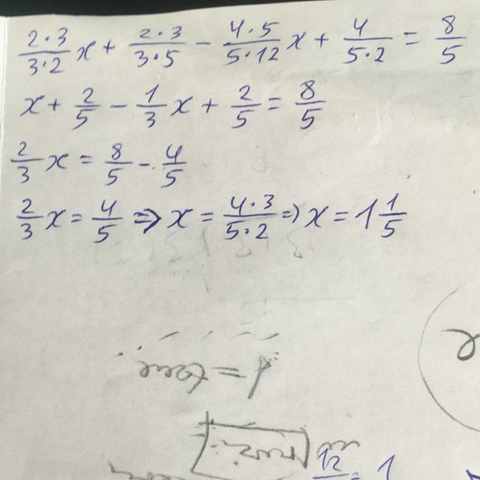 2·3/3·2 x + 2·3/3·5 − 4·5/5·12 x + 4/5·2 = 8/5
x + 2/5 − 1/3 x + 2/5 = 8/5
2/3 x = 8/5 − 4/5
2/3 x = 4/5 => x = 4·3/5·2 => x = 1 1/5
12 = 1